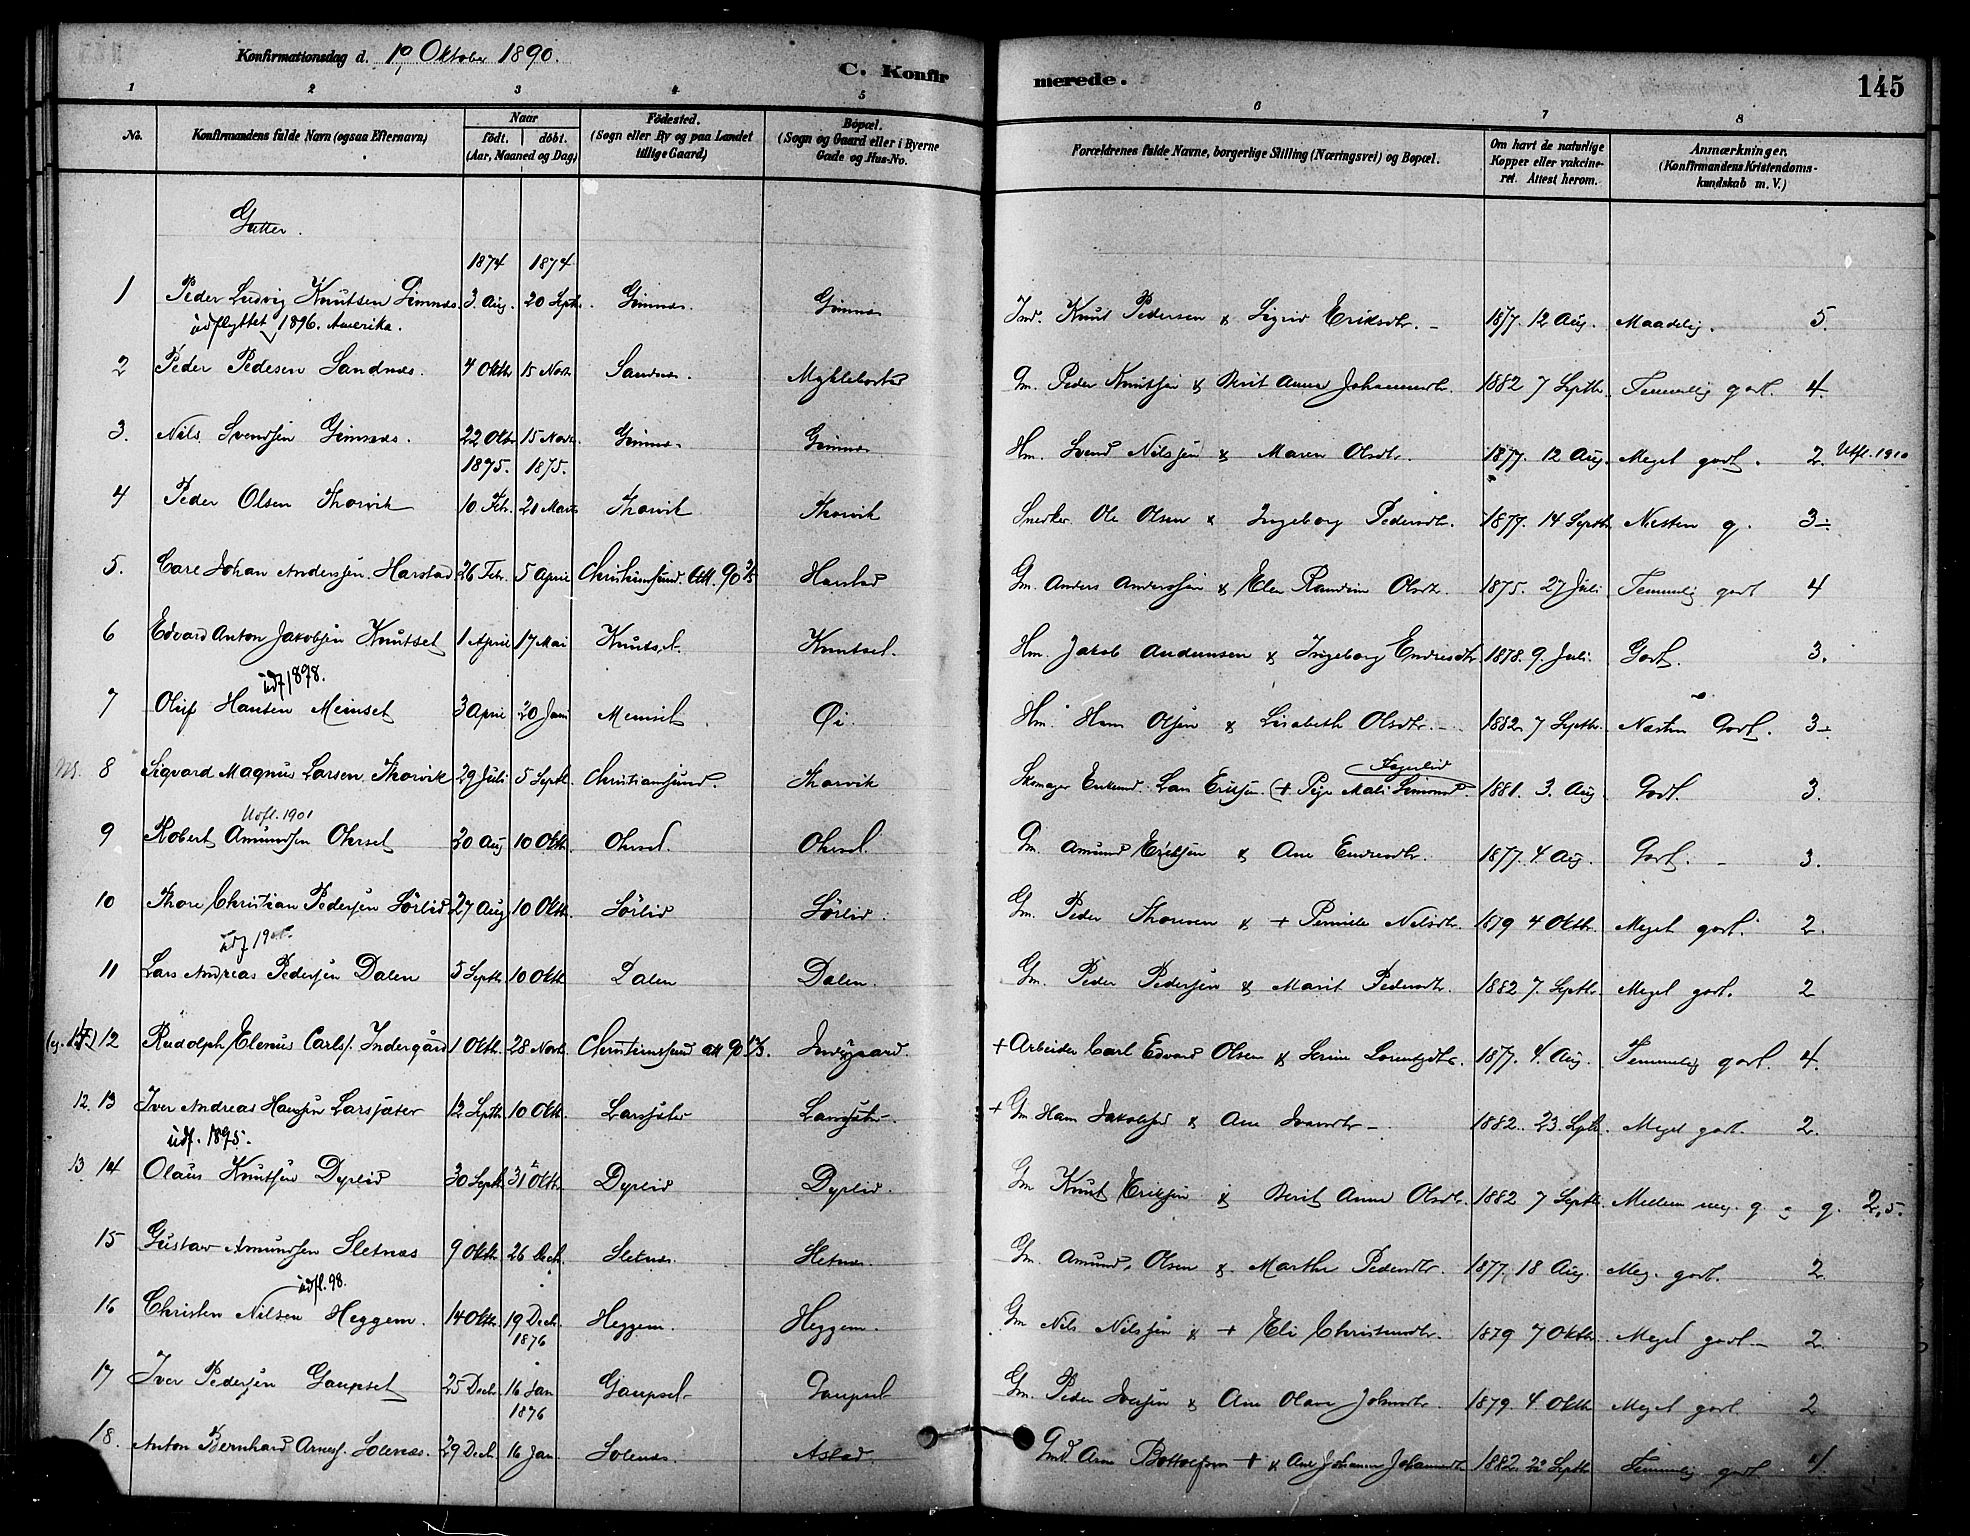 Konfirmationsdag d. 19 Oktober 1890.
C. Konfirmerede.
145
1 2 3 4 5 6 7 8
No. Konfirmandens fulde Navn (ogsaa Efternavn) Naar født. døbt. (Aar, Maaned og Dag) Fødested. (Sogn eller By og paa Landet tillige Gaard) Bopæl. (Sogn og Gaard eller i Byerne Gade og Hus-No.) Forældrenes fulde Navne, borgerlige Stilling (Næringsvei) og Bopæl. Om havt de naturlige Kopper eller vakcineret. Attest herom. Anmærkninger. (Konfirmandens Kristendomskundskab m. V.)
Gutter.
1874 1874
1 Peder Ludvig Knutsen Gimnæs 3. Aug. 20 Septb. Gimnæs Gimnæs Ind. Knut Pedersen & Sigrid Eriksdtr. 1877. 12 Aug. Maadelig. 5.
udflyttet 1896. Amerika.
2 Peder Pedesen Sandnæs. 4 Oktbr 15 Novb. Sandnæs. Myklebostad Gm. Peder Knutsen & Berit Anna Johannesdtr. 1882 7 Septbr. Temmelig godt. 4.
3. Nils Svendsen Gimnæs. 22 Oktbr 15 Novb. Gimnæs Gimnæs Hm. Svend Nilsen & Maren Olsdtr. 1877. 12 Aug. Meget godt. 2. Utfl. 1910
1875. 1875.
4 Peder Olsen Thorvik 10. Feb. 21 Marts Thorvik Thorvik Snedker Ole Olsen & Ingeborg Pedersdtr. 1877. 14 Septb. Næsten g. 3-.
5. Carl Johan Andersen Harstad 26 Feb. 5 April Christiansund. Att. 90 Harstad Gm. Anders Anderssen & Elen Randine Olsdtr. 1875. 27 Juli Temmelig godt 4
6 Edvard Anton Jakobsen Knutset 1 April 17 Mai Knutset. Knutset. Hm. Jakob Andreassen & Ingeborg Endresdtr 1878. 9. Juli. Godt. 3.
udf 1898.
7 Oluf Hansen Meinset 3 April 20 Juni Meinset Øi. Hm. Hans Olsen & Lisabeth Olsdtr. 1882. 7 Septbr. Næsten Godt. 3-.
8 Sigvard Magnus Larsen Thorvik 29 Juli 5 Septb. Christiansund. Thorvik Skomager Enkemd. Lars Eriksen (+ Pige Mali Simonsd. Fagerlid 1881. 3. Aug. Godt. 3.
Udfl. 1901
9 Robert Amundsen Ohrset 20 Aug 10 Oktb. Ohrset. Ohrset. Gm. Amund Eriksen & Ane Endresdtr. 1877. 4 Aug. Godt. 3.
10 Thore Christian Pedersen Sørlid 27 Aug 10 Oktb. Sørlid Sørlid. Gm. Peder Thoresen & + Pernille Nilsdtr. 1879 4 Oktbr. Meget godt. 2.
11 Lars Andreas Pedersen Dalen 5 Septbr 10 Oktb Dalen Dalen. Gm. Peder Pedersen & Marit Pedersdtr 1882 7. Septbr. Meget godt. 2
12 Rudolph Elenus Carlsf. Indergård 1 Oktb. 28 Novb. Christiansund att 90 Indergaard + Arbeider Carl Edvard Olsen & Serine Lorentzdtr. 1877. 4. Aug. Temmelig godt. 4.
12. 13 Iver Andreas Hansen Larssæter 12 Septb. 10 Oktb. Larssæter Larssæter + Gm Hans Jakobsen & Ane Iversdtr. 1882. 23. Septb. Meget godt. 2.
udf. 1895.
13. 14 Olaus Knutsen Dyrlid 30 Septb 31 Oktb. Dyrlid Dyrlid. Gm Knut Eriksen & Berit Anne Olsdtr. 1882 7 Septbr Mellem meg. g. og g. 2,5.
15 Gustav Amundsen Sletnæs 9 Oktbr 26 Dech. Sletnæs. Sletnæs. Gm. Amund Olsen & Marthe Pedersdtr. 1877. 18 Aug. Meg. godt. 2
udfl. 98.
16 Christen Nilsen Heggem. 14 Oktb. 19 Dech. Heggem. Heggem. Gm Nils Nilsen & + Eli Christensdtr. 1879 7 Oktbr. Meget godt. 2
1876
17 Iver Pedersen Gaupset 25 Dech. 16 Jan Gaupset Gaupset Gm. Peder Iversen & Ane Olava Johnsdtr. 1879. 4 Oktbr Meget godt 2
1876
18. Anton Bernhard Arnesf. Solenæs. 29 Dech. 16 Jan. Solenæs. Astad. Gmd. Arne Bottolfsen + & Ane Johanna Johannesdtr 1882. 22 Septbr Temmelig godt 4.